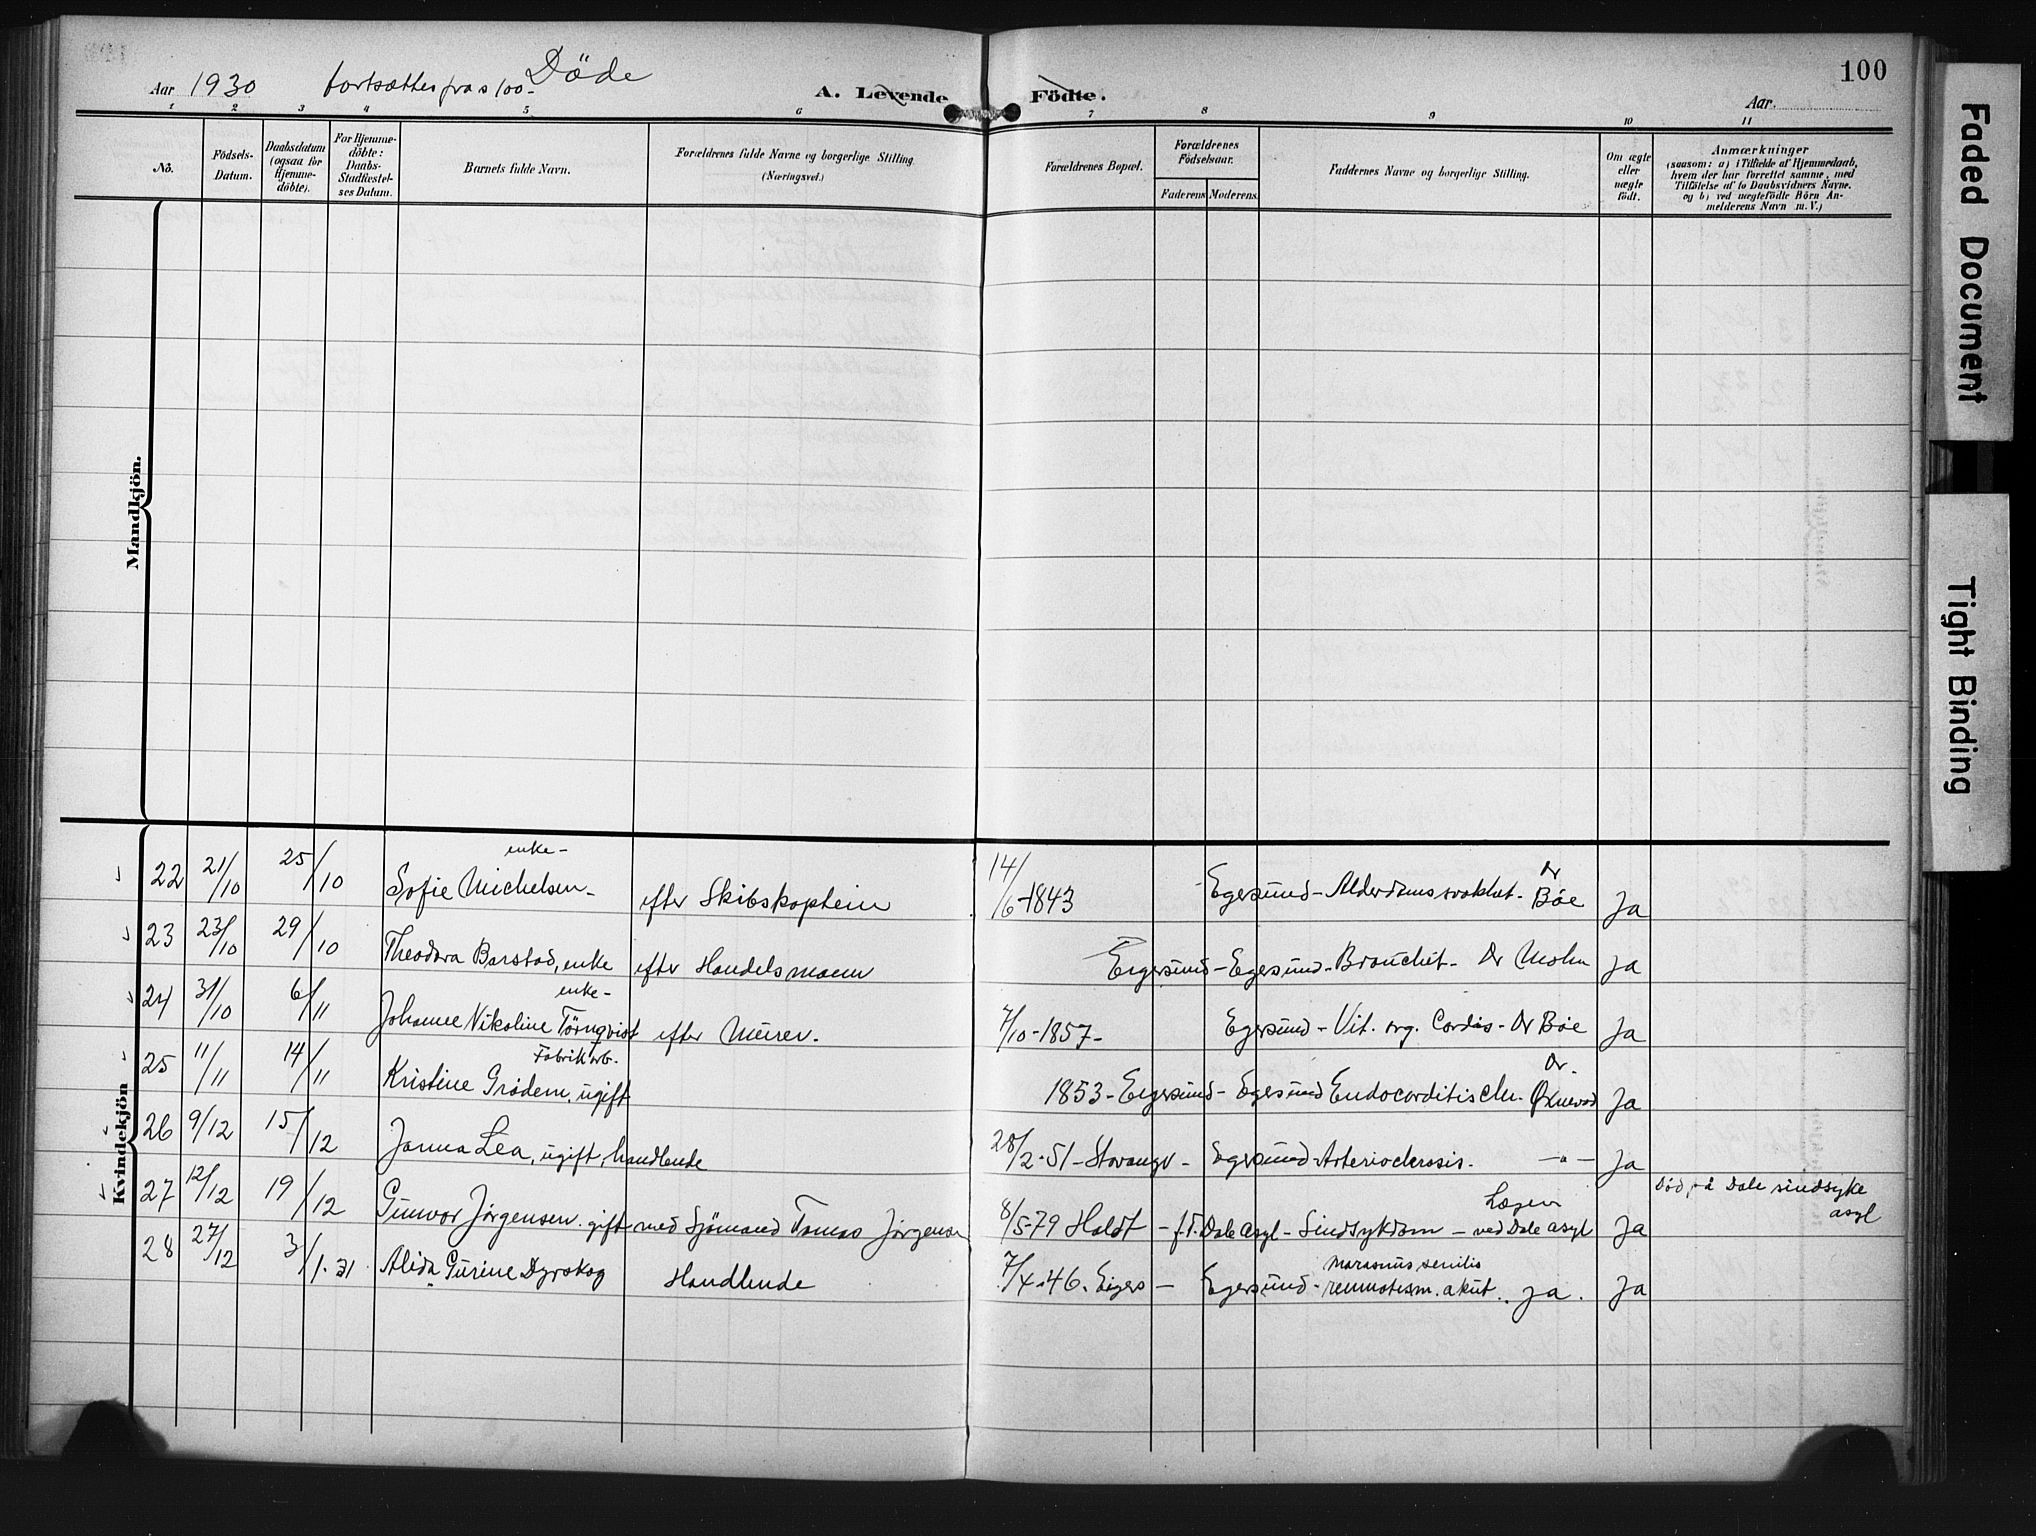 100
Aar 1930 fortsættes fra s 100 - Döde
A. Levende Födte.
Aar.
1 2 3 4 5 6 7 8 9 10 11
No.
Födsels-Datum.
Daabsdatum (ogsaa for Hjemme-döbte).
For Hjemme-döbte: Daabs-Stadfæstel-ses Datum.
Barnets fulde Navn.
Forældrenes fulde Navne og borgerlige Stilling. (Næringsvei.)
Forældrenes Bopæl.
Forældrenes Födselsaar.
Faderens Moderens
Faddernes Navne og borgerlige Stilling.
Om ægte eller uægte födt.
Anmærkninger
(saasom: a) i Tilfælde af Hjemmedaab, hvem der har forrettet samme, med Tilföielse af to Daabsvidners Navne. og b) ved uægtefödte Börn An-melderens Navn m. V.)
Mandkjön.
Kvindekjön
22 21/10 25/10 Sofie Michelsen - enke - efter Skibskaptein 14/6-1843 Egersund - Alderdomssvakhet - Dr Bøe Ja
23 23/10 29/10 Theodora Barstad, enke efter Handelsmann Eigersund - Egersund - Bronchit - Dr Mohn Ja
24 31/10 6/11 Johanne Nikoline Törnqvist enke - efter Murer. 7/10-1857- Egersund - Vit. org. Cordis - Dr Bøe Ja
25 11/11 14/11 Kristine Grødem, ugift Fabrikarb. 1853 - Eigersund - Egersund Endocarditis chr. Dr. Øxnevad Ja
26 9/12 15/12 Janna Lea, ugift, handlende 28/2-51 - Stavanger - Egersund - Arteriosclerosis. - " - Ja
27 12/12 19/12 Gunvor Jørgensen. gift med Sjömand Tomas Jørgensen 8/5-79 Haldt - f.T. Dale asyl - Sindsykdom - Lægen ved Dale asyl Ja Död på Dale sindsyke asyl
28 27/12 3/1.31 Alida Gurine Dyrskog Handlende 7/4.46. Eigers - Egersund - marasmus senilis reumatism. akut. ja. Ja
Faded Document
Tight Binding